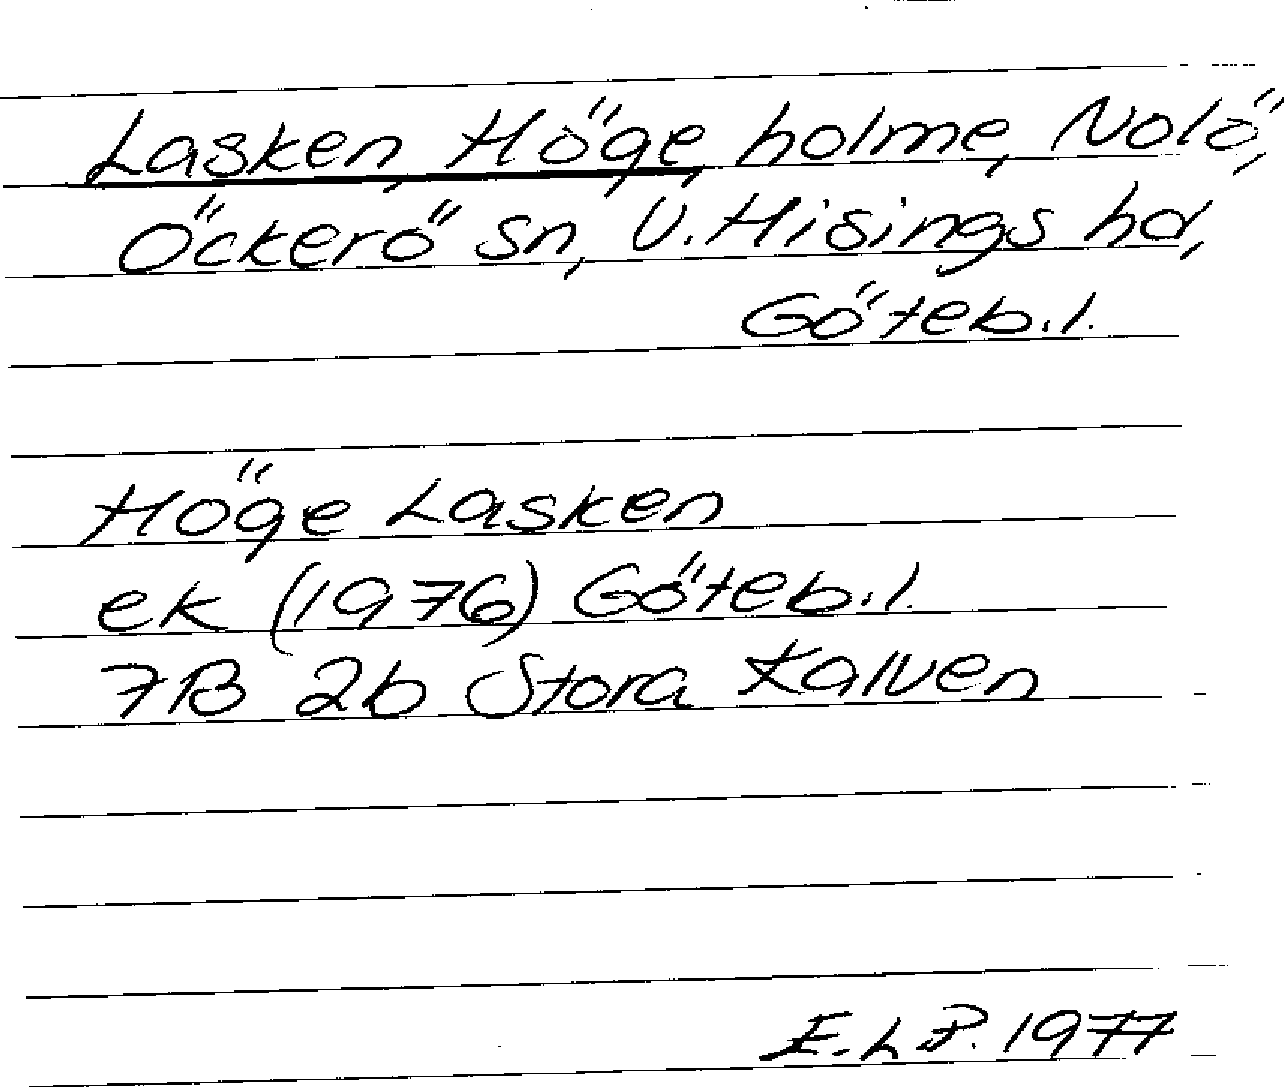 Lasken, Höge, holme, Nolö,
Öckerö sn, V. Hisings hd,
Göteb.l.
Höge Lasken
ek (1976) Göteb.l.
7B 2b Stora Kalven
E.L.P. 1977